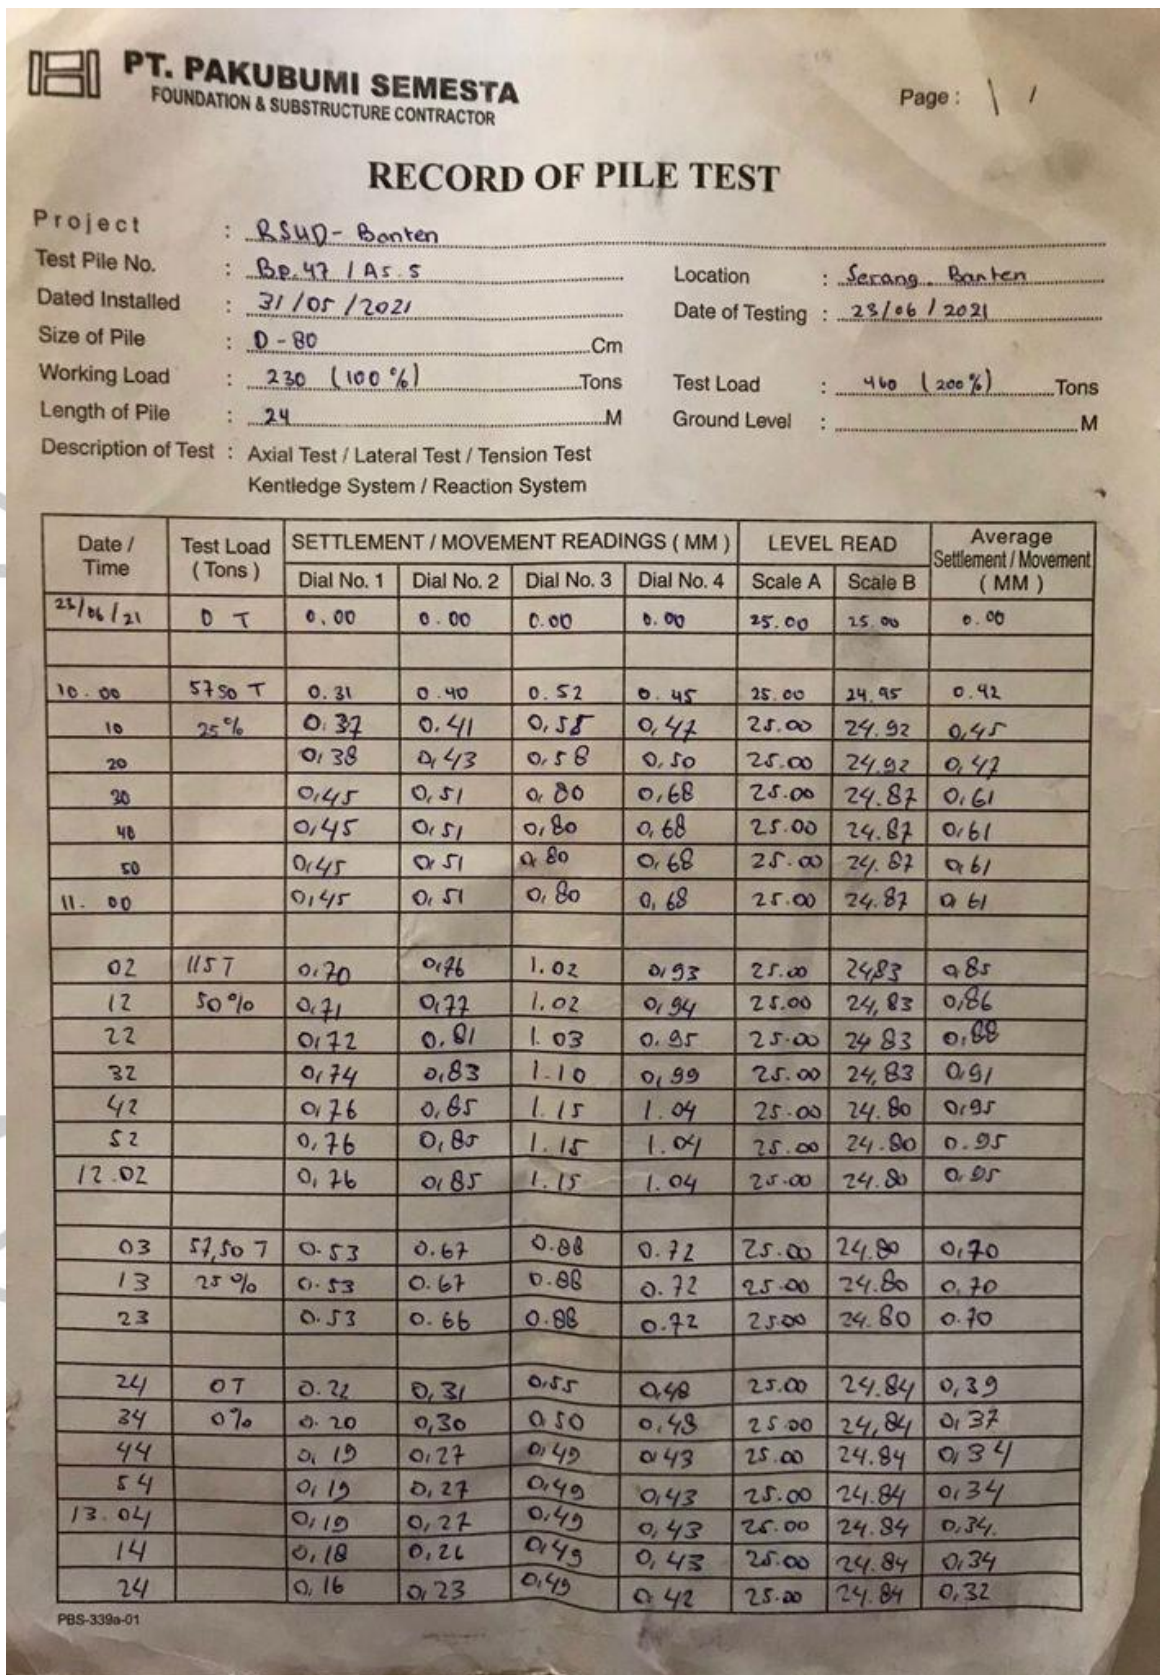 PT. PAKUBUMI SEMESTA
FOUNDATION & SUBSTRUCTURE CONTRACTOR
Page : \ /
RECORD OF PILE TEST
Project : RSUD- Banten
Test Pile No. : Bp.47 / As.5 Location : Serang. Banten
Dated Installed : 31/05/2021 Date of Testing : 23/06/2021
Size of Pile : D-80 Cm
Working Load : 230 (100%) Tons Test Load : 460 (200%) Tons
Length of Pile : 24 M Ground Level : M
Description of Test : Axial Test / Lateral Test / Tension Test
Kentledge System / Reaction System
Date / Time Test Load (Tons) SETTLEMENT / MOVEMENT READINGS ( MM ) LEVEL READ Average Settlement / Movement ( MM )
Dial No. 1 Dial No. 2 Dial No. 3 Dial No. 4 Scale A Scale B
23/06/21 0 T 0.00 0.00 0.00 0.00 25.00 25.00 0.00
10.00 5750 T 0.31 0.40 0.52 0.45 25.00 24.95 0.42
10 25% 0.37 0.41 0,55 0,47 25.00 24.92 0,45
20 0,38 0,43 0,58 0,50 25.00 24.92 0,47
30 0,45 0,51 0,80 0,68 25.00 24.87 0,61
40 0,45 0,51 0,80 0,68 25.00 24.87 0,61
50 0,45 0,51 0,80 0,68 25.00 24.87 0,61
11.00 0,45 0,51 0,80 0,68 25.00 24.87 0,61
02 115 T 0,70 0,76 1.02 0,93 25.00 24,83 0,85
12 50% 0,71 0,77 1.02 0,94 25.00 24,83 0,86
22 0,72 0.81 1.03 0.95 25.00 24 83 0,88
32 0,74 0,83 1.10 0,99 25.00 24,83 0,91
42 0,76 0,85 1.15 1.04 25.00 24.80 0,95
52 0,76 0,85 1.15 1.04 25.00 24.80 0.95
12.02 0,76 0,85 1.15 1.04 25.00 24.80 0,95
03 57,50 T 0.53 0.67 0.88 0.72 25.00 24.80 0,70
13 25% 0.53 0.67 0.88 0.72 25.00 24.80 0.70
23 0.53 0.66 0.88 0.72 25.00 24.80 0.70
24 0T 0.22 0,31 0,55 0,48 25.00 24.84 0,39
34 0% 0.20 0,30 0,50 0,48 25.00 24,84 0,37
44 0,19 0,27 0,49 0,43 25.00 24.84 0,34
54 0,19 0,27 0,49 0,43 25.00 24.84 0,34
13.04 0,19 0,27 0,49 0,43 25.00 24.84 0,34.
14 0,18 0,26 0,49 0,43 25.00 24.84 0,34
24 0,16 0,23 0,49 0.42 25.00 24.84 0,32
PBS-339a-01